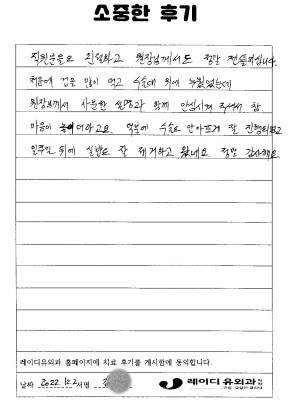 소중한 후기
직원분들도 친절하고 원장님께서도 정말 젠틀하십니다.
처음에 겁을 많이 먹고 수술대 위에 누웠었는데
원장님께서 차분한 설명과 함께 안심시켜 주셔서 참
마음이 놓이더라고요. 덕분에 수술도 안아프게 잘 진행되었고
일주일 뒤에 실밥도 잘 제거하고 왔네요. 정말 감사해요
레이디유외과 홈페이지에 치료 후기를 게시함에 동의합니다.
날짜 2022.12.2 서명
레이디 유외과